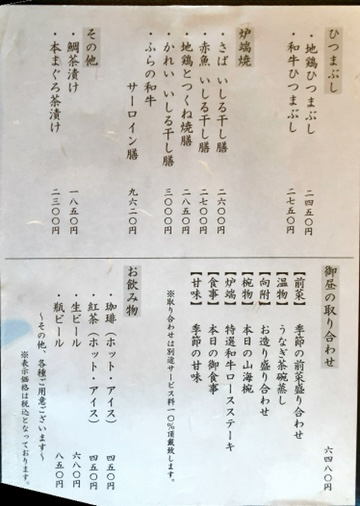 ひつまぶし
・地鶏ひつまぶし 二四五〇円
・和牛ひつまぶし 二七五〇円
炉端焼
・さば いしる干し膳 二六〇〇円
・赤魚 いしる干し膳 二七〇〇円
・地鶏とつくね焼膳 二八五〇円
・かれい いしる干し膳 三〇〇〇円
・ふらの和牛
サーロイン膳 九六二〇円
その他
・鯛茶漬け 一八五〇円
・本まぐろ茶漬け 二三〇〇円
御昼の取り合わせ 六四八〇円
【前菜】 季節の前菜盛り合わせ
【温物】 うなぎ茶碗蒸し
【向附】 お造り盛り合わせ
【椀物】 本日の山海椀
【炉端】 特選和牛ロースステーキ
【食事】 本日の御食事
【甘味】 季節の甘味
※取り合わせは別途サービス料一〇％頂戴致します。
お飲み物
・珈琲（ホット・アイス） 四五〇円
・紅茶（ホット・アイス） 四五〇円
・生ビール 六八〇円
・瓶ビール 八五〇円
～その他、各種ご用意ございます～
※表示価格は税込となっております。